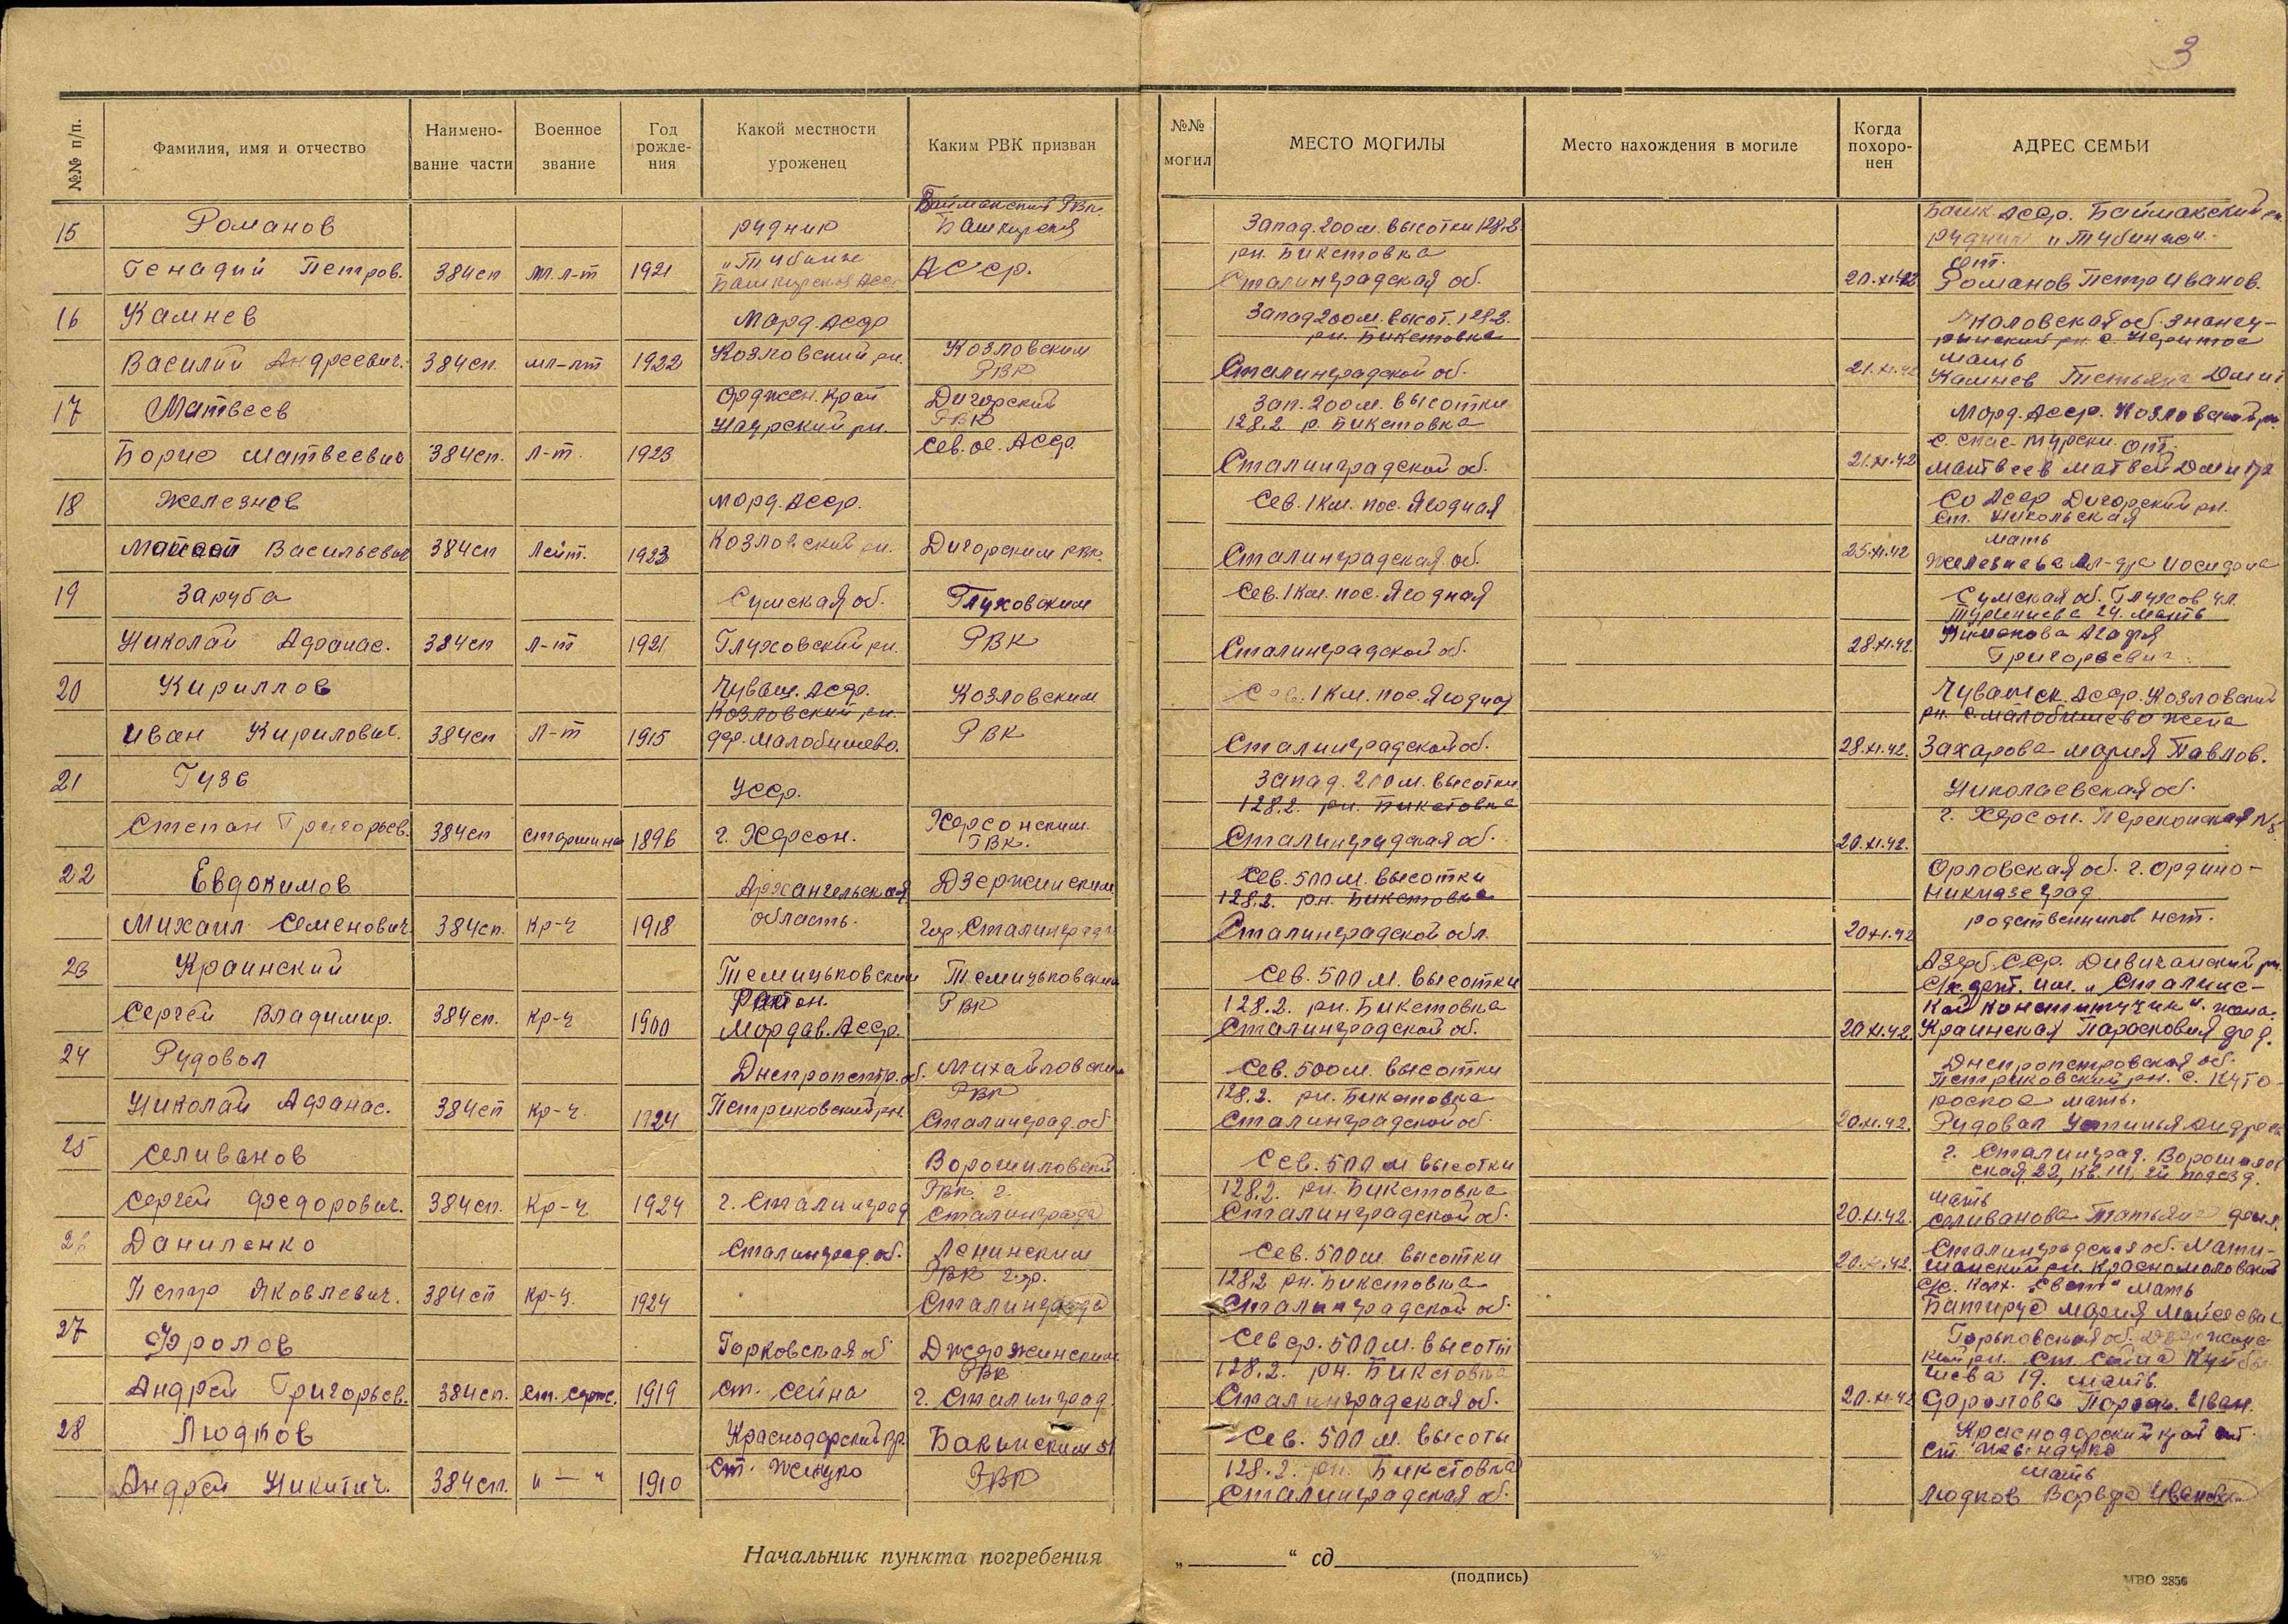 3
№№ п/п.
Фамилия, имя и отчество
Наимено-
вание части
Военное
звание
Год
рожде-
ния
Какой местности
уроженец
Каким РВК призван
№№
могил
МЕСТО МОГИЛЫ
Место нахождения в могиле
Когда
похоро-
нен
АДРЕС СЕМЬИ
15 Романов рудник Баймакский РВК. Башкирская Запад. 200 м. высотки 128,2. Башк. Асср. Баймакский рн.
рн. Бикетовка рудник "Тубинка".
Генадий Петров. 384сп мл л-т 1921 "Тубинк Башкирской Асср Асср. Сталинградская об. 20.XI.42 от. Романов Петр Иванов.
16 Камнев Морд. Асср Запад 200 м. высот. 128.2.
рн. Бикетовка
Василий Андреевич. 384сп. мл-лт 1922 Козловский рн. Козловским РВК Сталинградской об. 21.XI.42 мать Камнев
17 Матвеев Орджон. край Дигорский Зап. 200 м. высотки Морд. Асср. Козловский рн.
РВК 128,2 р. Бикетовка
Борис Матвеевич 384сп. л-т. 1923 Сев. ос. Асср. Сталинградской об. 21.XI.42 Матвеев Матвей
18 Железнов Морд. Асср. Сев. 1 км. пос. Ягодная Со Асср Дигорский рн.
ст. Никольская
Васильевич 384сп Лейт. 1923 Козловский рн. Дигорским РВК. Сталинградская об. 25.XI.42 мать
19 Заруба Сумская об. Глуховским Сев. 1 км. пос. Ягодная Сумская об. Глухов ул.
24. мать
Николай Афанас. 384сп л-т 1921 Глуховский рн. РВК Сталинградской об. 28.XI.42 Григорьевич.
20 Кириллов Чуваш. Асср. Козловским Сев. 1 км. пос. Ягодная Чувашск. Асср. Козловский
Козловский рн. рн. с. Малобишево жена
Иван Кирилович. 384сп л-т 1915 дер. Малобишево. РВК Сталинградской об. 28.XI.42. Захарова Мария Павлов.
21 Гузь Усср. Запад. 200 м. высотки Николаевская об.
128.2. рн. Бикетовка
Степан Григорьев. 384сп старшина 1896 г. Херсон. Херсонским РВК. Сталинградская об. 20.XI.42. г. Херсон.
22 Евдокимов Архангельская Дзержинским Сев. 500 м. высотки Орловская об. г. Орджо-
128.2. рн. Бикетовка никидзеград
Михаил Семенович. 384сп. кр-ц 1918 область. гор. Сталинграда Сталинградской обл. 20.XI.42 родственников нет.
23 Краинский Темицьковский Темицьковским Сев. 500 м. высотки Азерб. ССР. Дивичанский рн.
район. РВК 128.2. рн. Бикетовка им. "Сталинс-
кой конституции". жена.
Сергей Владимир. 384сп. кр-ц 1900 Мордав. Асср. Сталинградской об. 20.XI.42. Краинская Парасковия фед.
24 Рудовол Днепропетр. об. Михайловским Сев. 500 м. высотки Днепропетровская об.
РВК 128.2. рн. Бикетовка Петриковский рн. с.
мать.
Николай Афанас. 384сп кр-ц. 1924 Петриковский рн. Сталинград. об Сталинградской об. 20.XI.42. Рудовол Устинья
25 Селиванов Ворошиловский Сев. 500 м высотки г. Сталинград. Ворошилов-
РВК г. 128.2. рн. Бикетовка ская 22, кв. 111,
Сергей Федорович. 384сп. кр-ц 1924 г. Сталинград Сталинграда Сталинградской об. 20.XI.42. мать Селиванова Татьяна
26 Даниленко Сталинград. об. Ленинским Сев. 500 м. высотки 20.XI.42. Сталинградская об.
РВК гор. 128,2 рн. Бикетовка
Петр Яковлевич. 384сп кр-ц. 1924 Сталинграда Сталинградской об. "Свет" мать
Мария Мойсеевич.
27 Фролов Горковская об Джержинским Север. 500 м. высоты Горьковская об.
РВК 128.2. рн. Бикетовка ст. Сейма Куйбы-
шева 19. мать
Андрей Григорьев. 384сп. ст. серж. 1919 ст. Сейма г. Сталинград. Сталинградская об. 20.XI.42 Фролова Иван.
28 Людков Краснодарский кр. Бакинским Сев. 500 м. высоты Краснодарский край
128.2. рн. Бикетовка мать
Андрей Никитич. 384сп. "—" 1910 ст. РВК Сталинградская об. Людков Варвара Ивановна
Начальник пункта погребения „ “ сд
(подпись)
МВО 2856